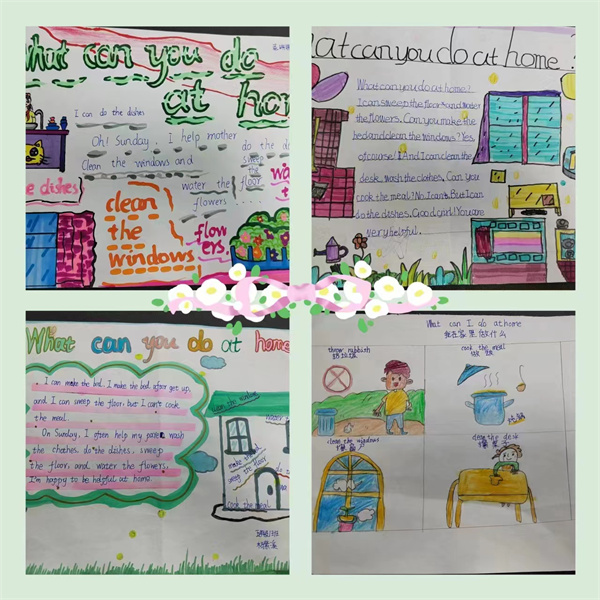 What can you do
at hom
I can do the dishes
Oh! Sunday, I help mother do the d
Clean the windows and sweep
the
floor
water the
flowers
e dishes
clean
the
windows
wa
t
flow
ers.
at can you do at home ?
What can you do at home?
I can sweep the floor and water
the flowers. Can you make the
bed and clean the windows? Yes,
of course! And I can clean the
desk, wash the clothes. Can you
cook the meal? No. I can't. But I can
do the dishes. Good girl! You are
very helpful.
What can you do at home
I can make the bed. I make the bed after get up,
and I can sweep the floor, but I can't cook
the meal.
On Sunday, I often help my wash
the clothes, do the dishes, sweep
the floor, and water the flowers.
I'm happy to be helpful at home.
clean the window
cook the meal
What can I do at home
我在家里做什么
throw rubbish
扔垃圾
cook the meal
做饭
clean the windows
擦窗户
clean the desk
擦桌子